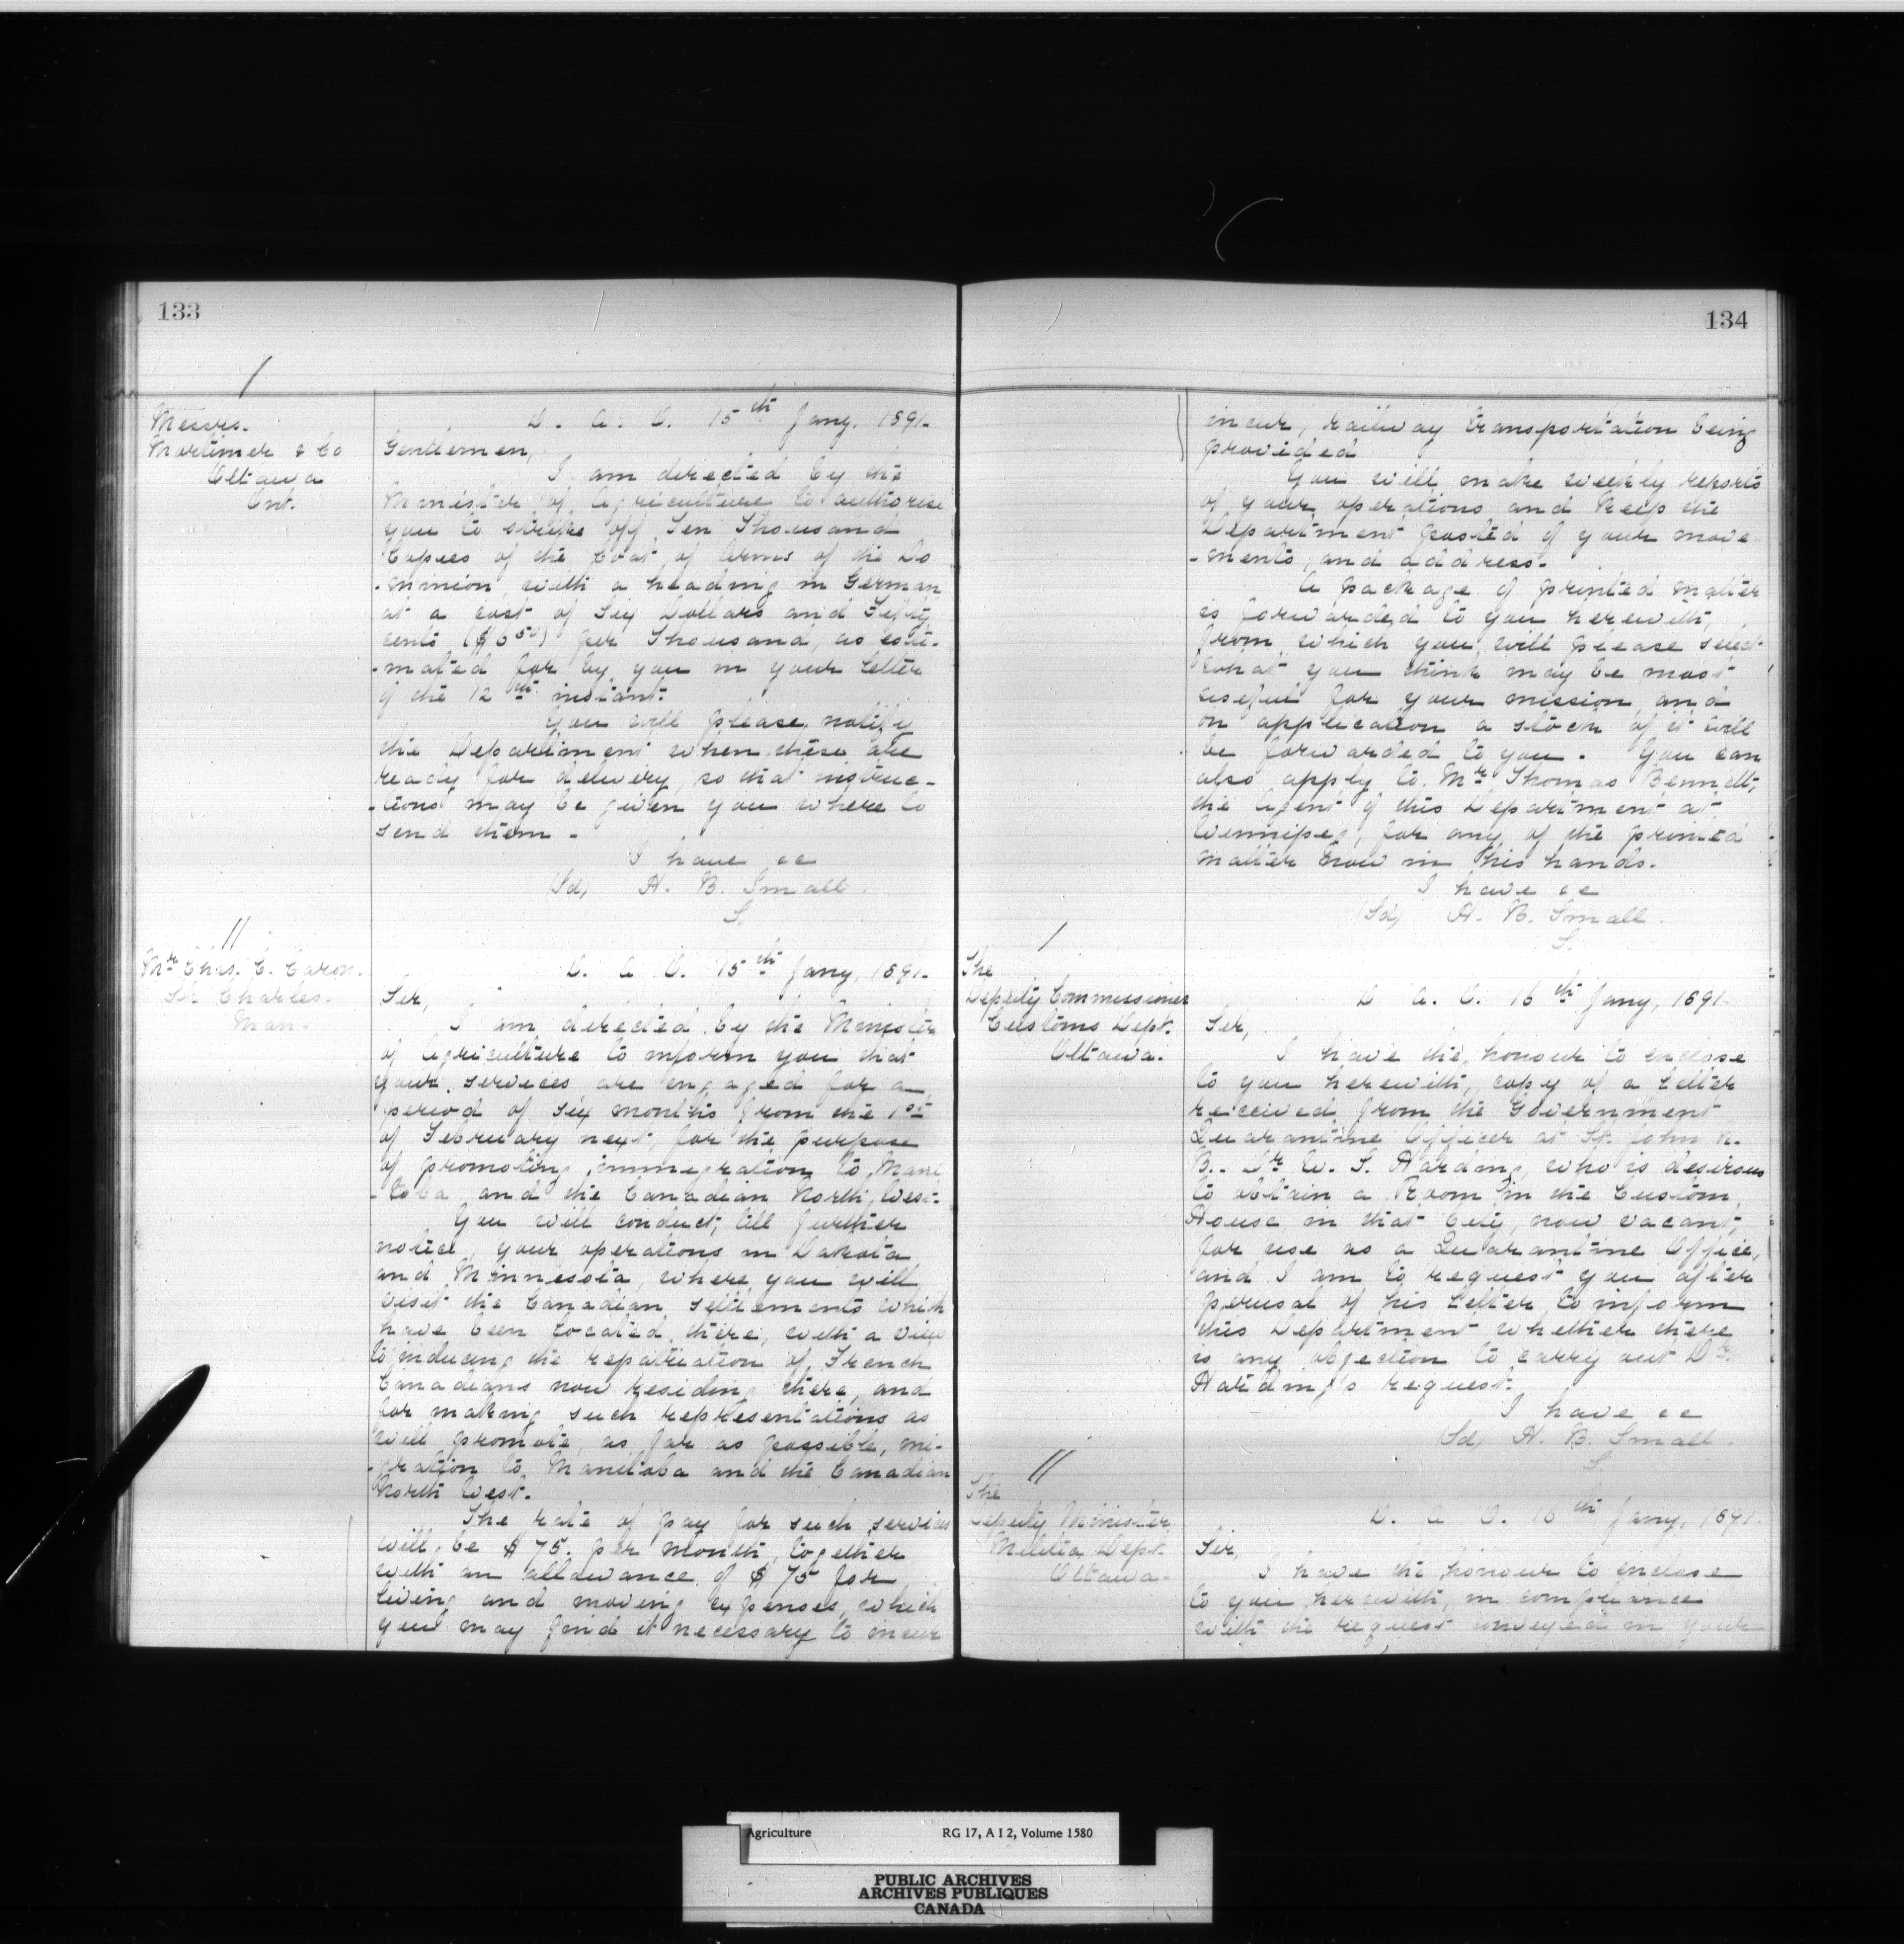 133
Messrs.
Mortimer & Co
Ottawa
Ont.
D. A. O. 15th Jany. 1891.
Gentlemen,
I am directed by the
Minister of Agriculture to authorise
you to strike off Ten Thousand
Copies of the Coat of Arms of the Do
-minion, with a heading in German
at a cost of Six Dollars and Fifty
cents ($6.50) per Thousand, as esti-
-mated for by you in your letter
of the 12th instant.
You will please notify
the Department when these are
ready for delivery, so that instruc-
-tions may be given you where to
send them -
I have &c
(Sd) H. B. Small.
S.
Mr Chas. C. Caron.
St. Charles.
Man.
D. A. O. 15th Jany, 1891.
Sir,
I am directed by the Minister
of Agriculture to inform you that
your services are engaged for a
period of six months from the 1st
of February next, for the purpose
of promoting immigration to Mani
-toba and the Canadian North West.
You will conduct, till further
notice, your operations in Dakota
and Minnesota, where you will
visit the Canadian settlements which
have been located there, with a view
to inducing the repatriation of French
Canadians now residing there, and
for making such representations as
will promote, as far as possible, mi-
-gration to Manitoba and the Canadian
North West.
The rate of pay for such services
will be $75. per month, together
with an allowance of $75 for
living and moving expenses, which
you may find it necessary to incur
134
incur, railway transportation being
provided
You will make weekly reports
of your operations and keep the
Department posted of your move
-ments, and address.
A package of printed matter
is forwarded to you herewith,
from which you will please select
what you think may be most
useful for your mission, and
on application a stock of it will
be forwarded to you. You can
also apply to Mr Thomas Bennett,
the Agent of this Department at
Winnipeg, for any of the printed
matter now in his hands.
I have &c
(Sd) H. B. Small.
S.
The
Deputy Commissioner
Customs Dept.
Ottawa.
D. A. O. 16th Jany, 1891.
Sir,
I have the honour to enclose
to you herewith, copy of a letter
received from the Government
Quarantine Officer at St. John N.
B.. Dr W. S. Harding, who is desirous
to obtain a Room in the Custom
House in that City, now vacant,
for use as a Quarantine Office,
and I am to request you after
perusal of his letter to inform
this Department whether there
is any objection to carry out Dr.
Harding's request.
I have &c
(Sd) H. B. Small.
S.
The
Deputy Minister
Militia Dept.
Ottawa.
D. A. O. 16th Jany, 1891.
Sir,
I have the honour to enclose
to you herewith, in compliance
with the request conveyed in your
Agriculture RG 17, A I 2, Volume 1580
PUBLIC ARCHIVES
ARCHIVES PUBLIQUES
CANADA